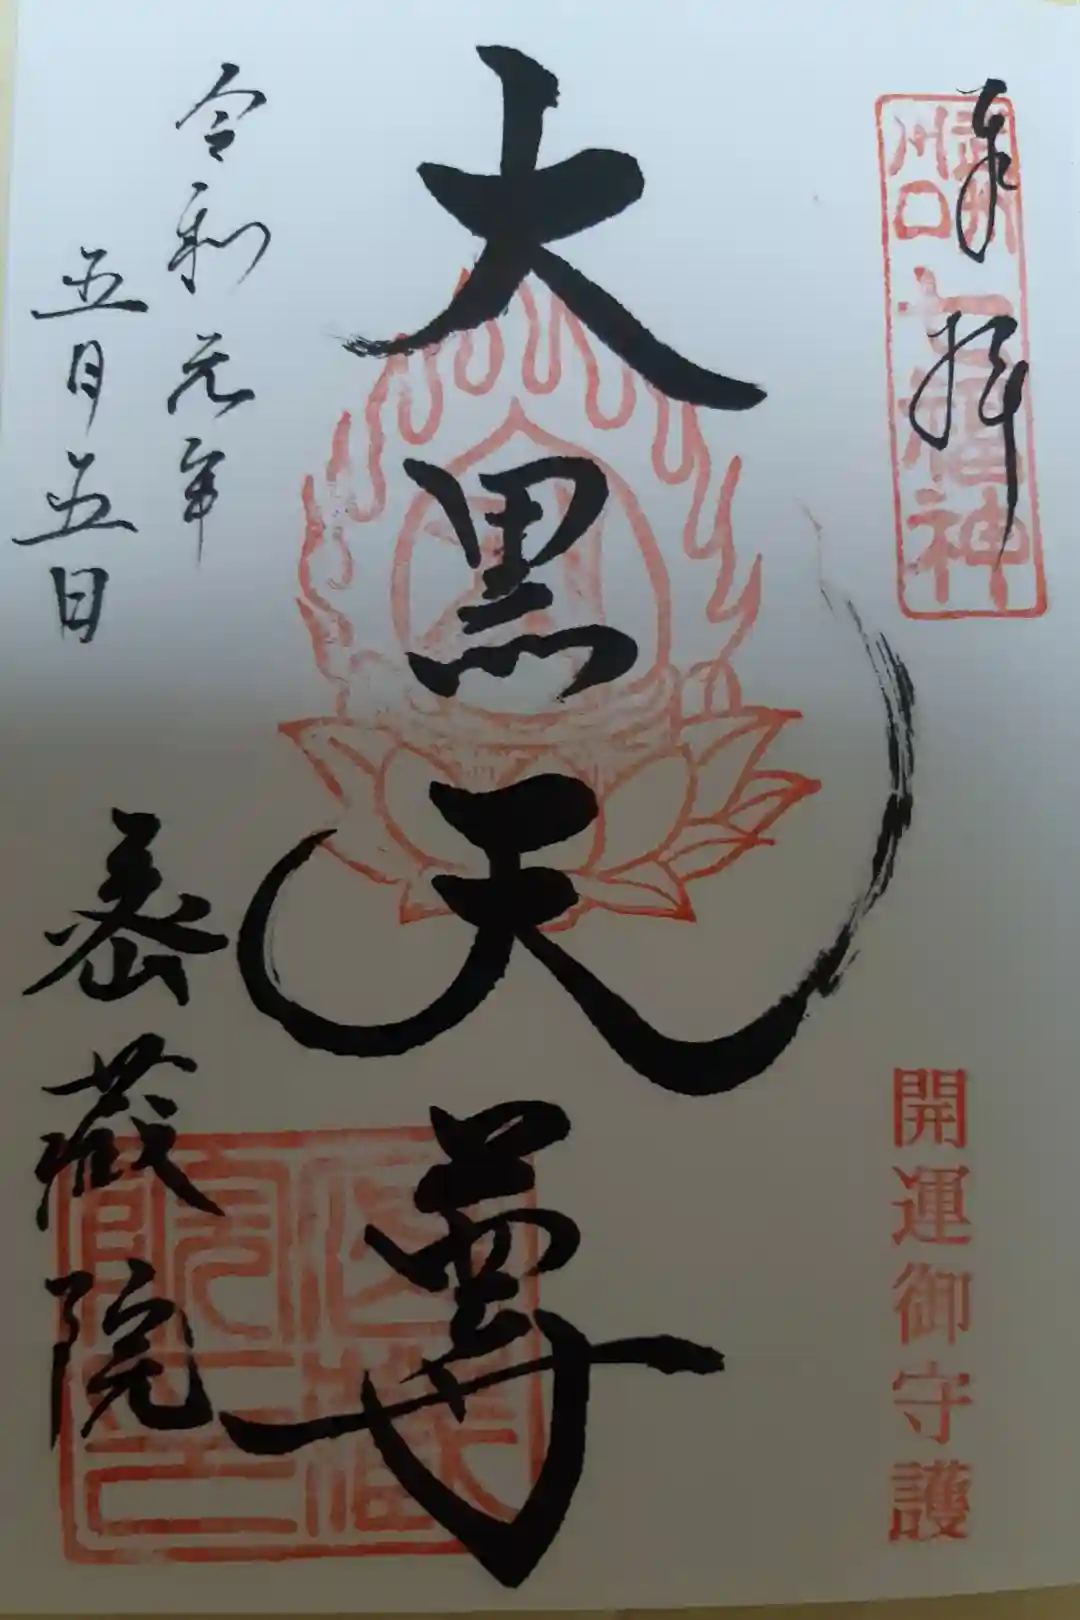 奉拝
武州
川口
七福神
開運御守護
大黒天尊
令和元年
五月五日
密蔵院